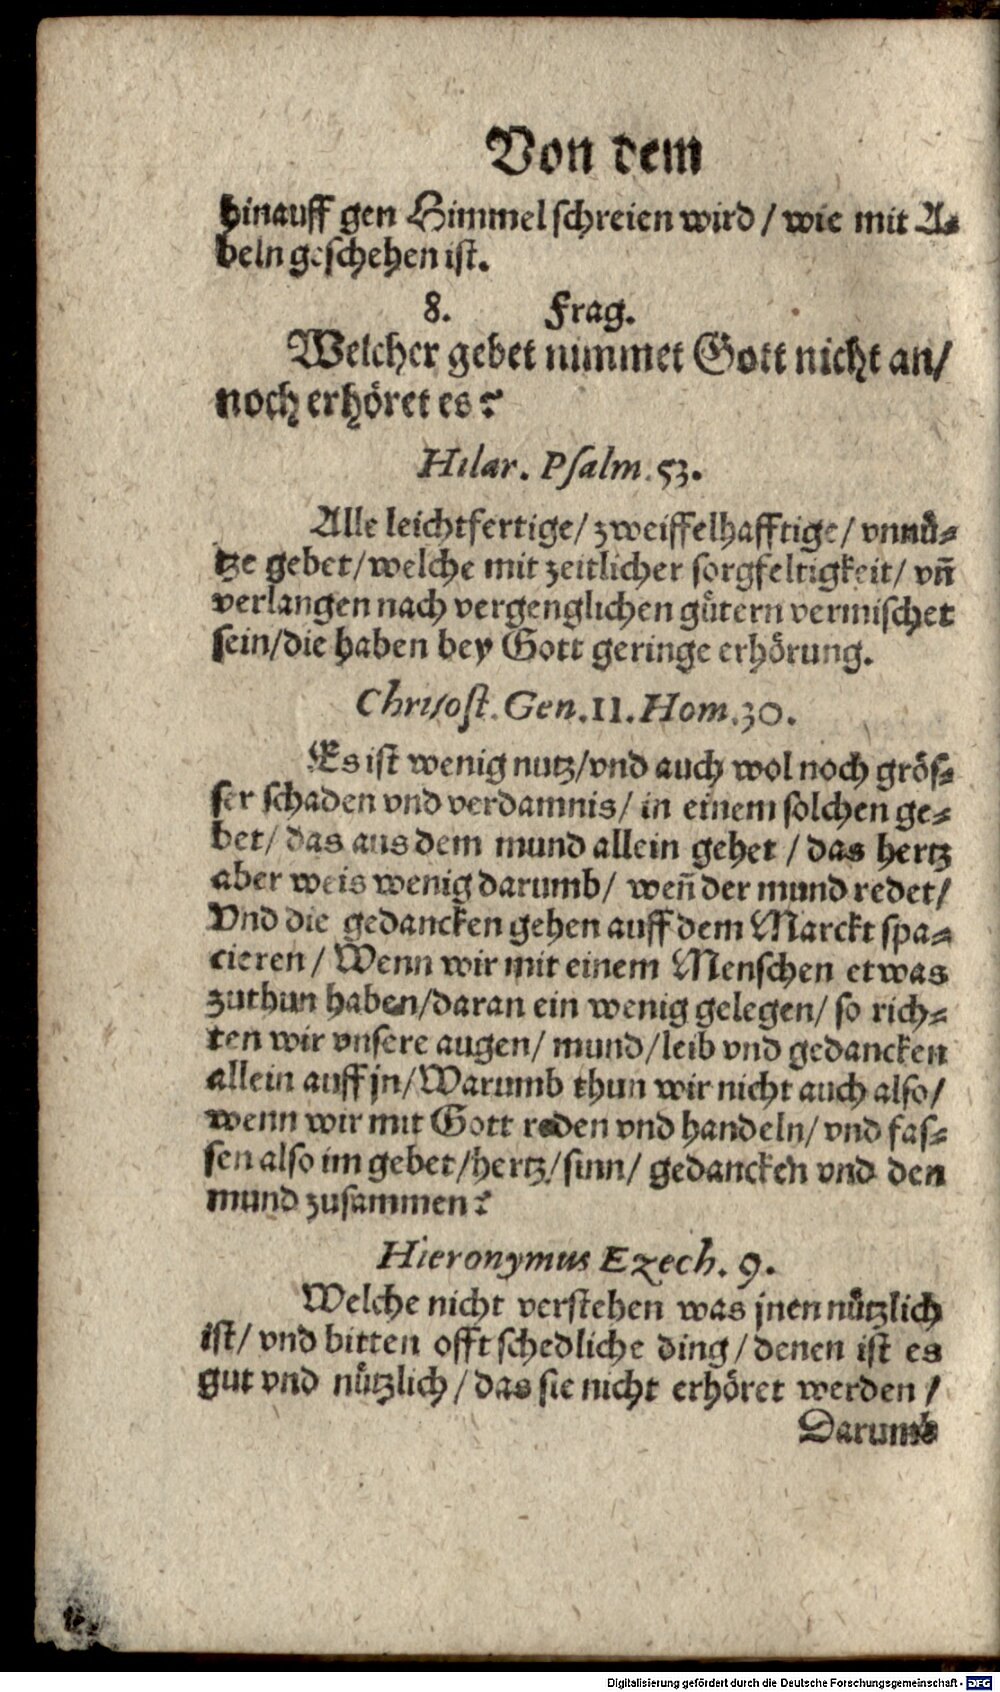 Von dem
hinauff gen Himmel schreien wird / wie mit A⸗
beln geschehen ist.
8. Frag.
Welcher gebet nimmet Gott nicht an/
noch erhöret es?
Hilar. Psalm. 53.
Alle leichtfertige/ zweiffelhafftige/ vnnuͤ⸗
tze gebet/welche mit zeitlicher sorgfeltigkeit/ vñ
verlangen nach vergenglichen guͤtern vermischet
sein/die haben bey Gott geringe erhörung.
Chrisost. Gen. 11. Hom. 30.
Es ist wenig nutz/vnd auch wol noch grös⸗
ser schaden vnd verdamnis/ in einem solchen ge⸗
bet/ das aus dem mund allein gehet / das hertz
aber weis wenig darumb/ weñ der mund redet/
Vnd die gedancken gehen auff dem Marckt spa⸗
cieren / Wenn wir mit einem Menschen etwas
zuthun haben/daran ein wenig gelegen/ so rich⸗
ten wir vnsere augen/ mund/leib vnd gedancken
allein auff jn/Warumb thun wir nicht auch also/
wenn wir mit Gott reden vnd handeln/ vnd fas⸗
sen also im gebet/hertz/sinn/ gedancken vnd den
mund zusammen?
Hieronymus Ezech. 9.
Welche nicht verstehen was jnen nuͤtzlich
ist/ vnd bitten offt schedliche ding / denen ist es
gut vnd nuͤtzlich / das sie nicht erhöret werden /
Darumb
Digitalisierung gefördert durch die Deutsche Forschungsgemeinschaft - DFG